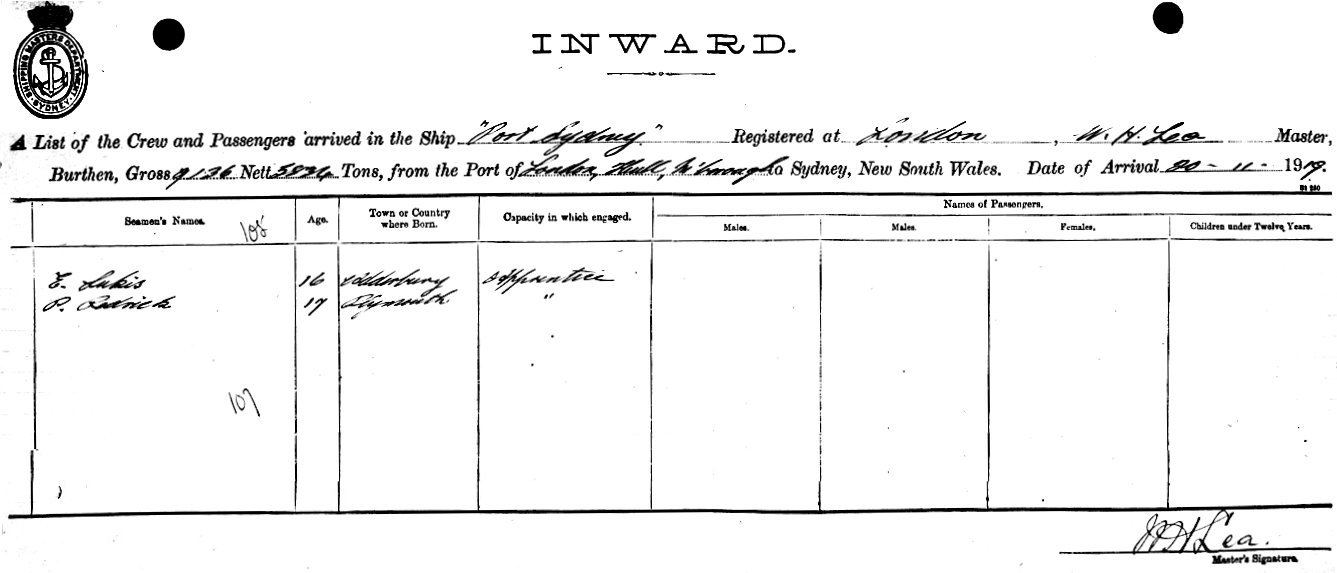 SHIPPING MASTERS DEPARTMENT SYDNEY
INWARD.
A List of the Crew and Passengers arrived in the Ship "Port Sydney" Registered at London, W. H. Lea Master,
Burthen, Gross 9136 Nett Tons, from the Port of London, Hull, M'brough to Sydney, New South Wales. Date of Arrival 20-11-1919.
Seamen's Names. Age. Town or Country where Born. Capacity in which engaged. Names of Passengers.
Males. Males. Females. Children under Twelve Years.
108
E. Lukis 16 Adderbury Apprentice
P. 17 Plymouth "
107
W H Lea.
Master's Signature.